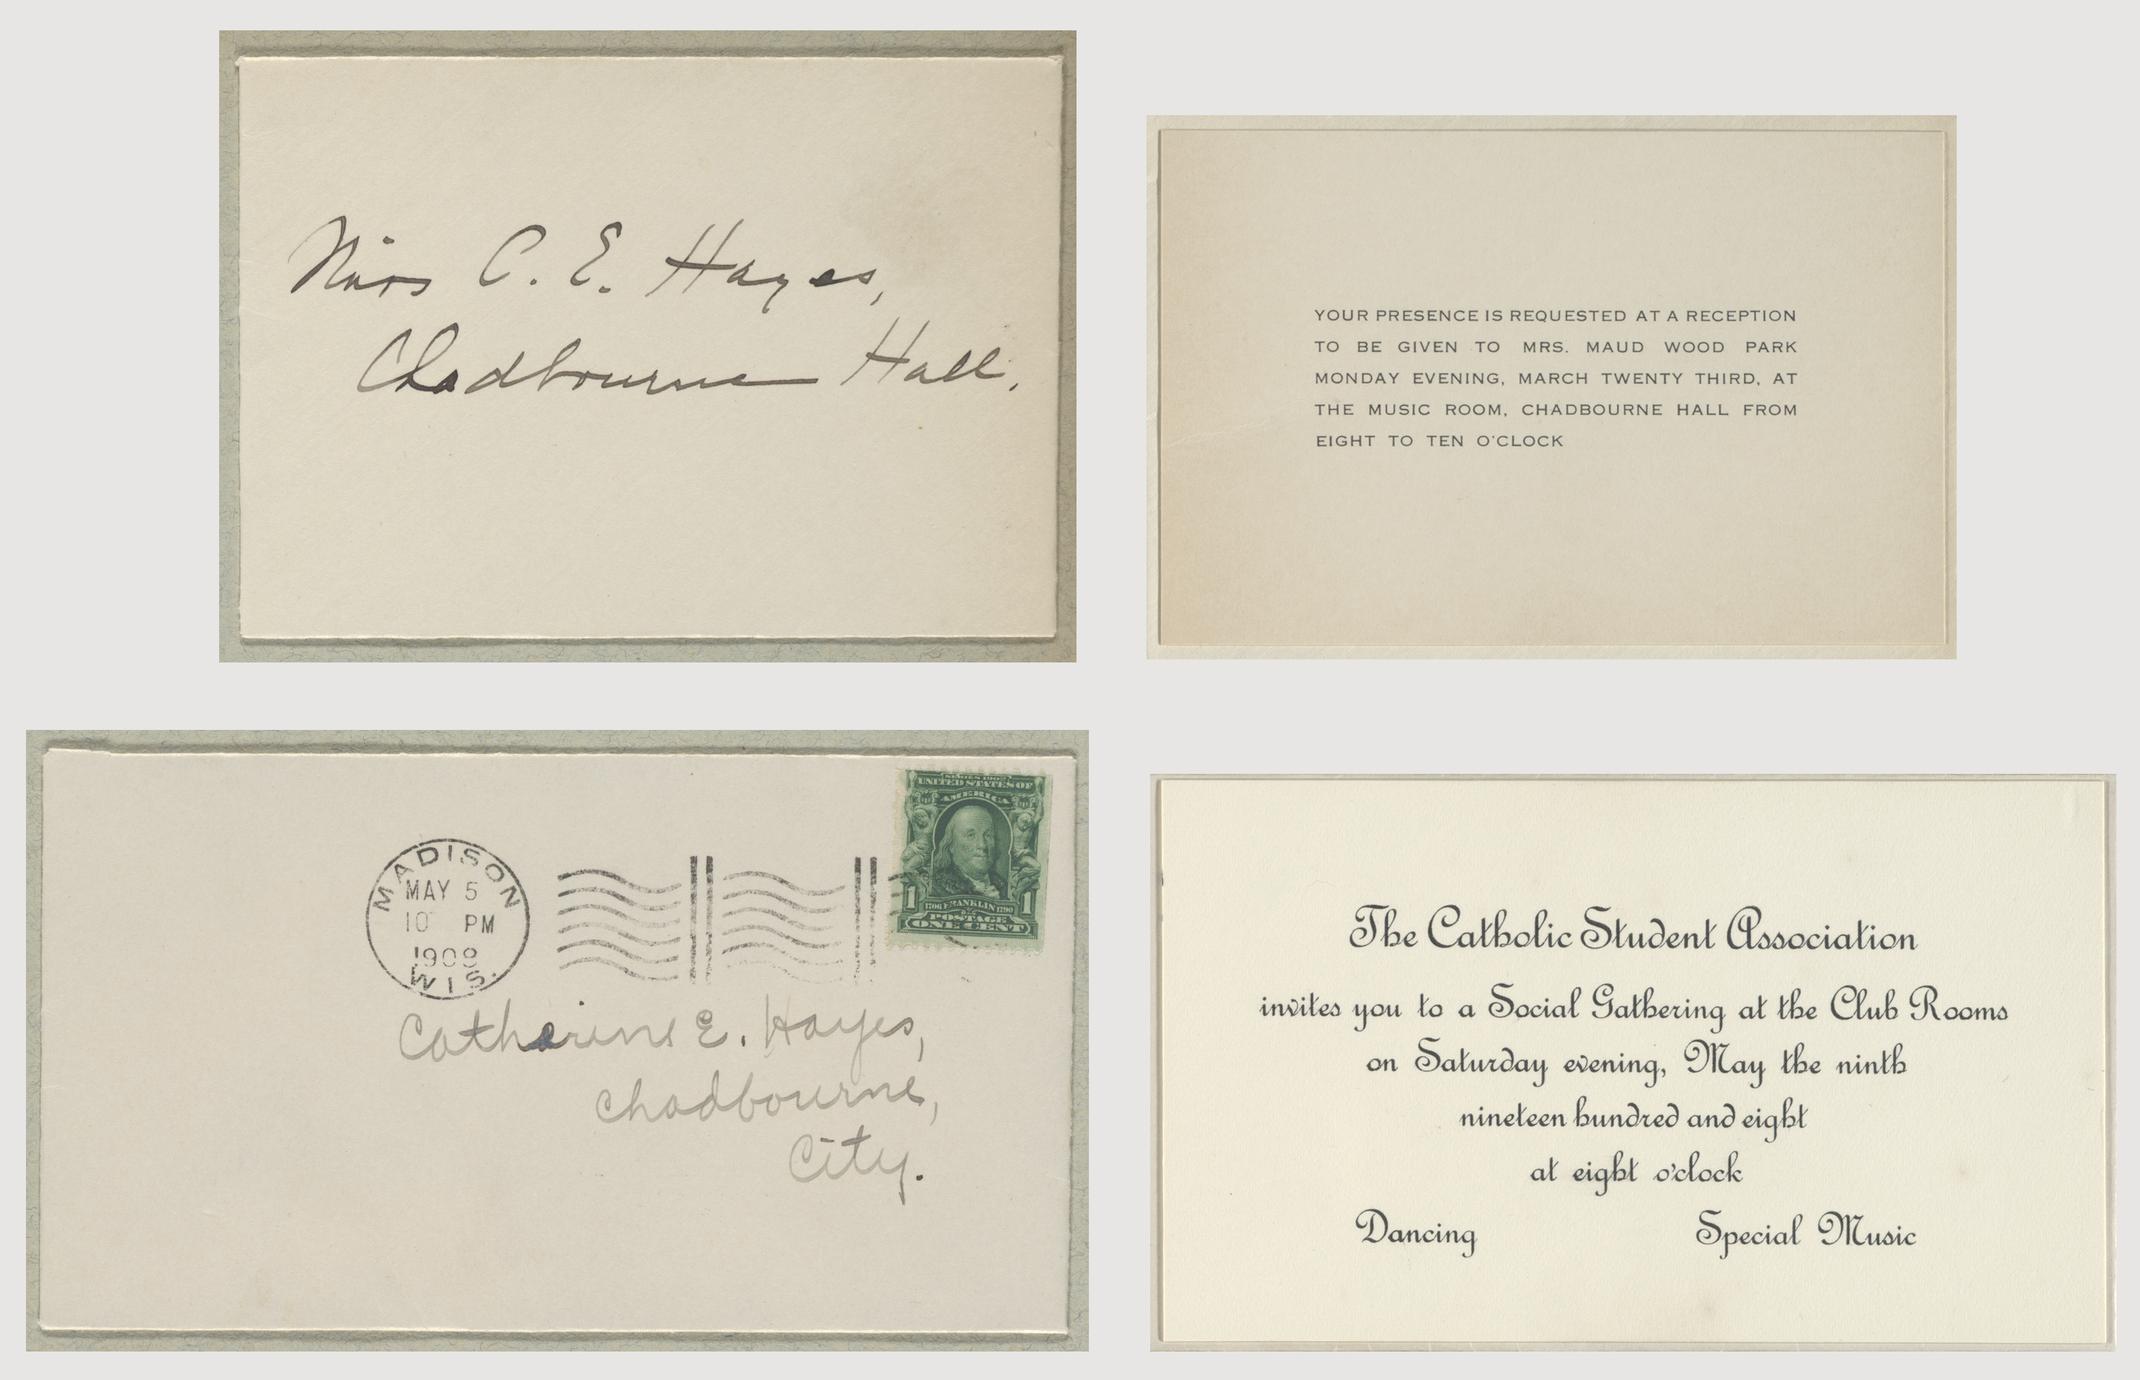 Miss C. E. Hayes,
Chadbourne Hall.
YOUR PRESENCE IS REQUESTED AT A RECEPTION
TO BE GIVEN TO MRS. MAUD WOOD PARK
MONDAY EVENING, MARCH TWENTY THIRD, AT
THE MUSIC ROOM, CHADBOURNE HALL FROM
EIGHT TO TEN O'CLOCK
MADISON
MAY 5
10 PM
1908
WIS.
SERIES 1902
UNITED STATES OF
AMERICA
1 1
1706 FRANKLIN 1790
POSTAGE
ONE CENT
Catherine E. Hayes,
Chadbourne,
City.
The Catholic Student Association
invites you to a Social Gathering at the Club Rooms
on Saturday evening, May the ninth
nineteen hundred and eight
at eight o'clock
Dancing Special Music